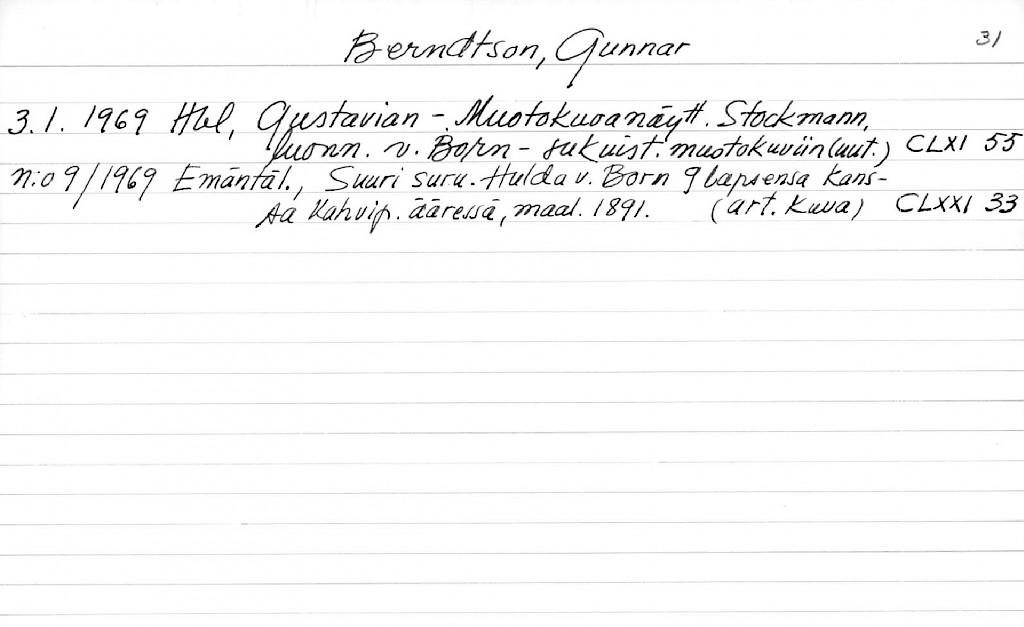 Berndtson, Gunnar 31
3.1. 1969 Hbl, Gustavian - Muotokuvanäytt. Stockmann,
luonn. v. Born - sukuist. muotokuviin (uut.) CLXI 55
n:o 9/1969 Emäntäl., Suuri suru. Hulda v. Born 9 lapsensa kans-
sa kahvip. ääressä, maal. 1891. (art. kuva) CLXXI 33